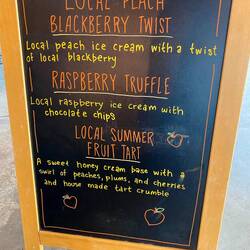 LOCAL PEACH
BLACKBERRY TWIST
Local peach ice cream with a twist
of local blackberry
RASPBERRY TRUFFLE
Local raspberry ice cream with
chocolate chips
LOCAL SUMMER
FRUIT TART
A sweet honey cream base with a
swirl of peaches, plums, and cherries
and house made tart crumble